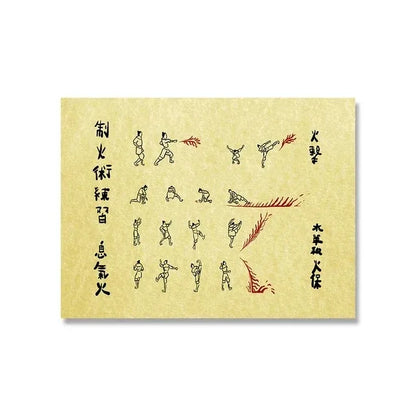 火擊
水羊 火保
制火術練習 息氣火